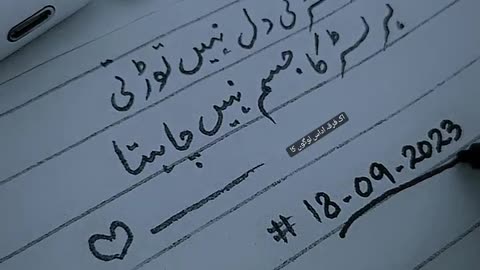 دل نہیں توڑتی
ہر لڑکا جسم نہیں چاہتا
اک فرقہ اداس لوگوں کا
# 18-09-2023